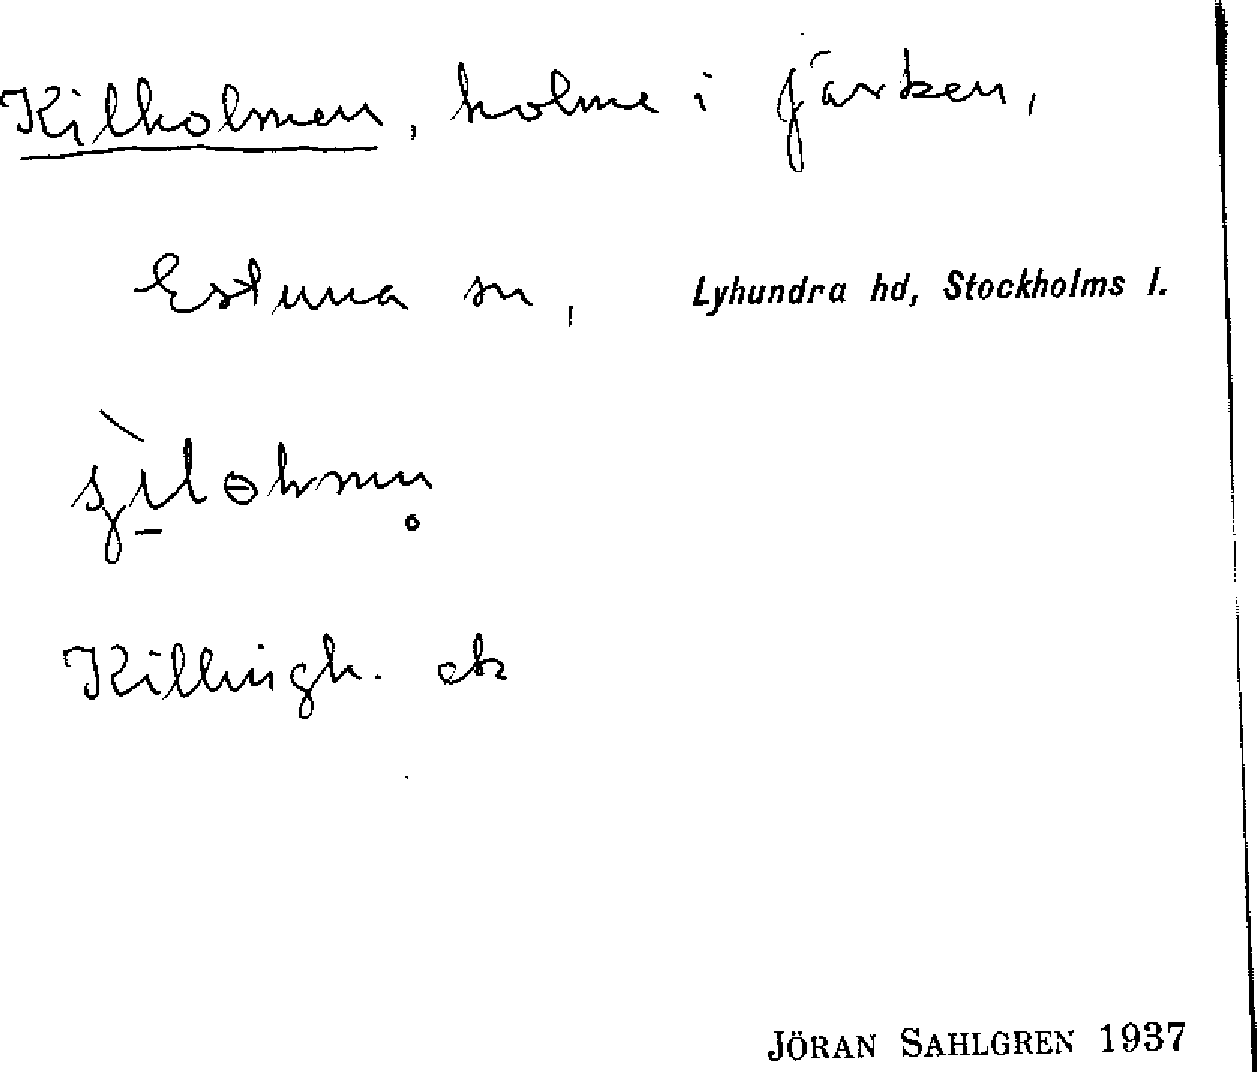 Kilholmen, holme i Järken,
Estuna sn, Lyhundra hd, Stockholms l.
Killingh. ek
JÖRAN SAHLGREN 1937